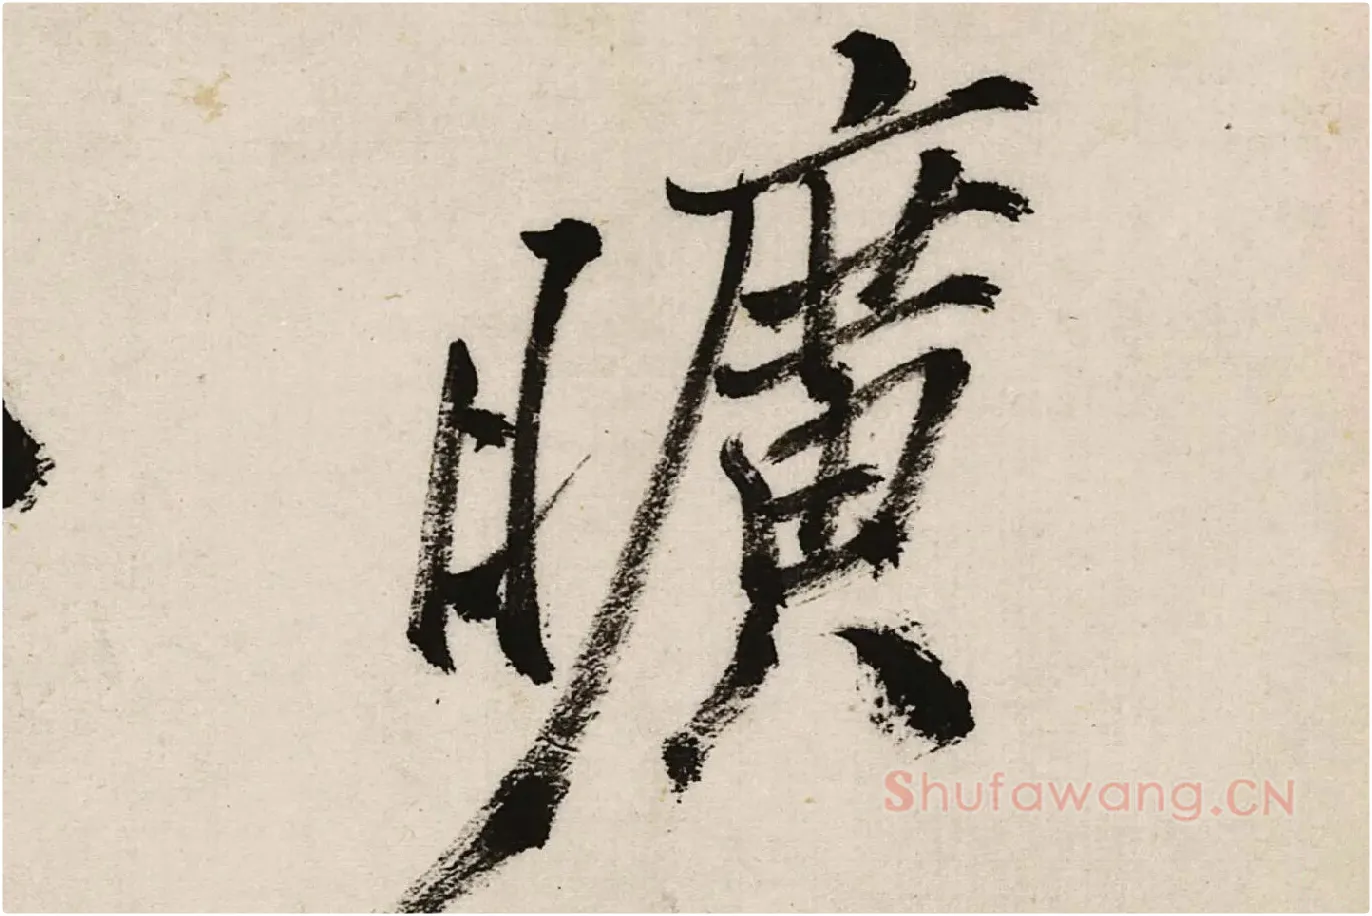 曠
Shufawang.CN